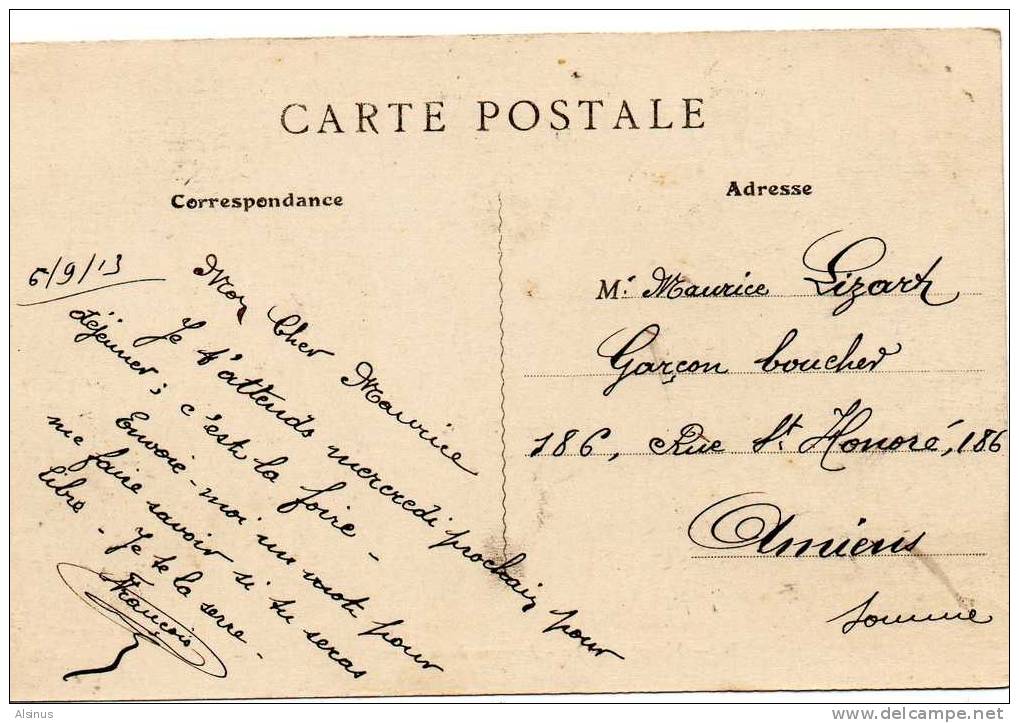 CARTE POSTALE
Correspondance
Adresse
5/9/13
Mon Cher Maurice
Je t'attends mercredi prochain pour
déjeuner; c'est la foire -
Envoie-moi un mot pour
me faire savoir si tu seras
libre - Je te la serre -
François
Mr Maurice Lizart
Garçon boucher
186, Rue St Honoré, 186
Amiens
Somme
Alsinus
www.delcampe.net